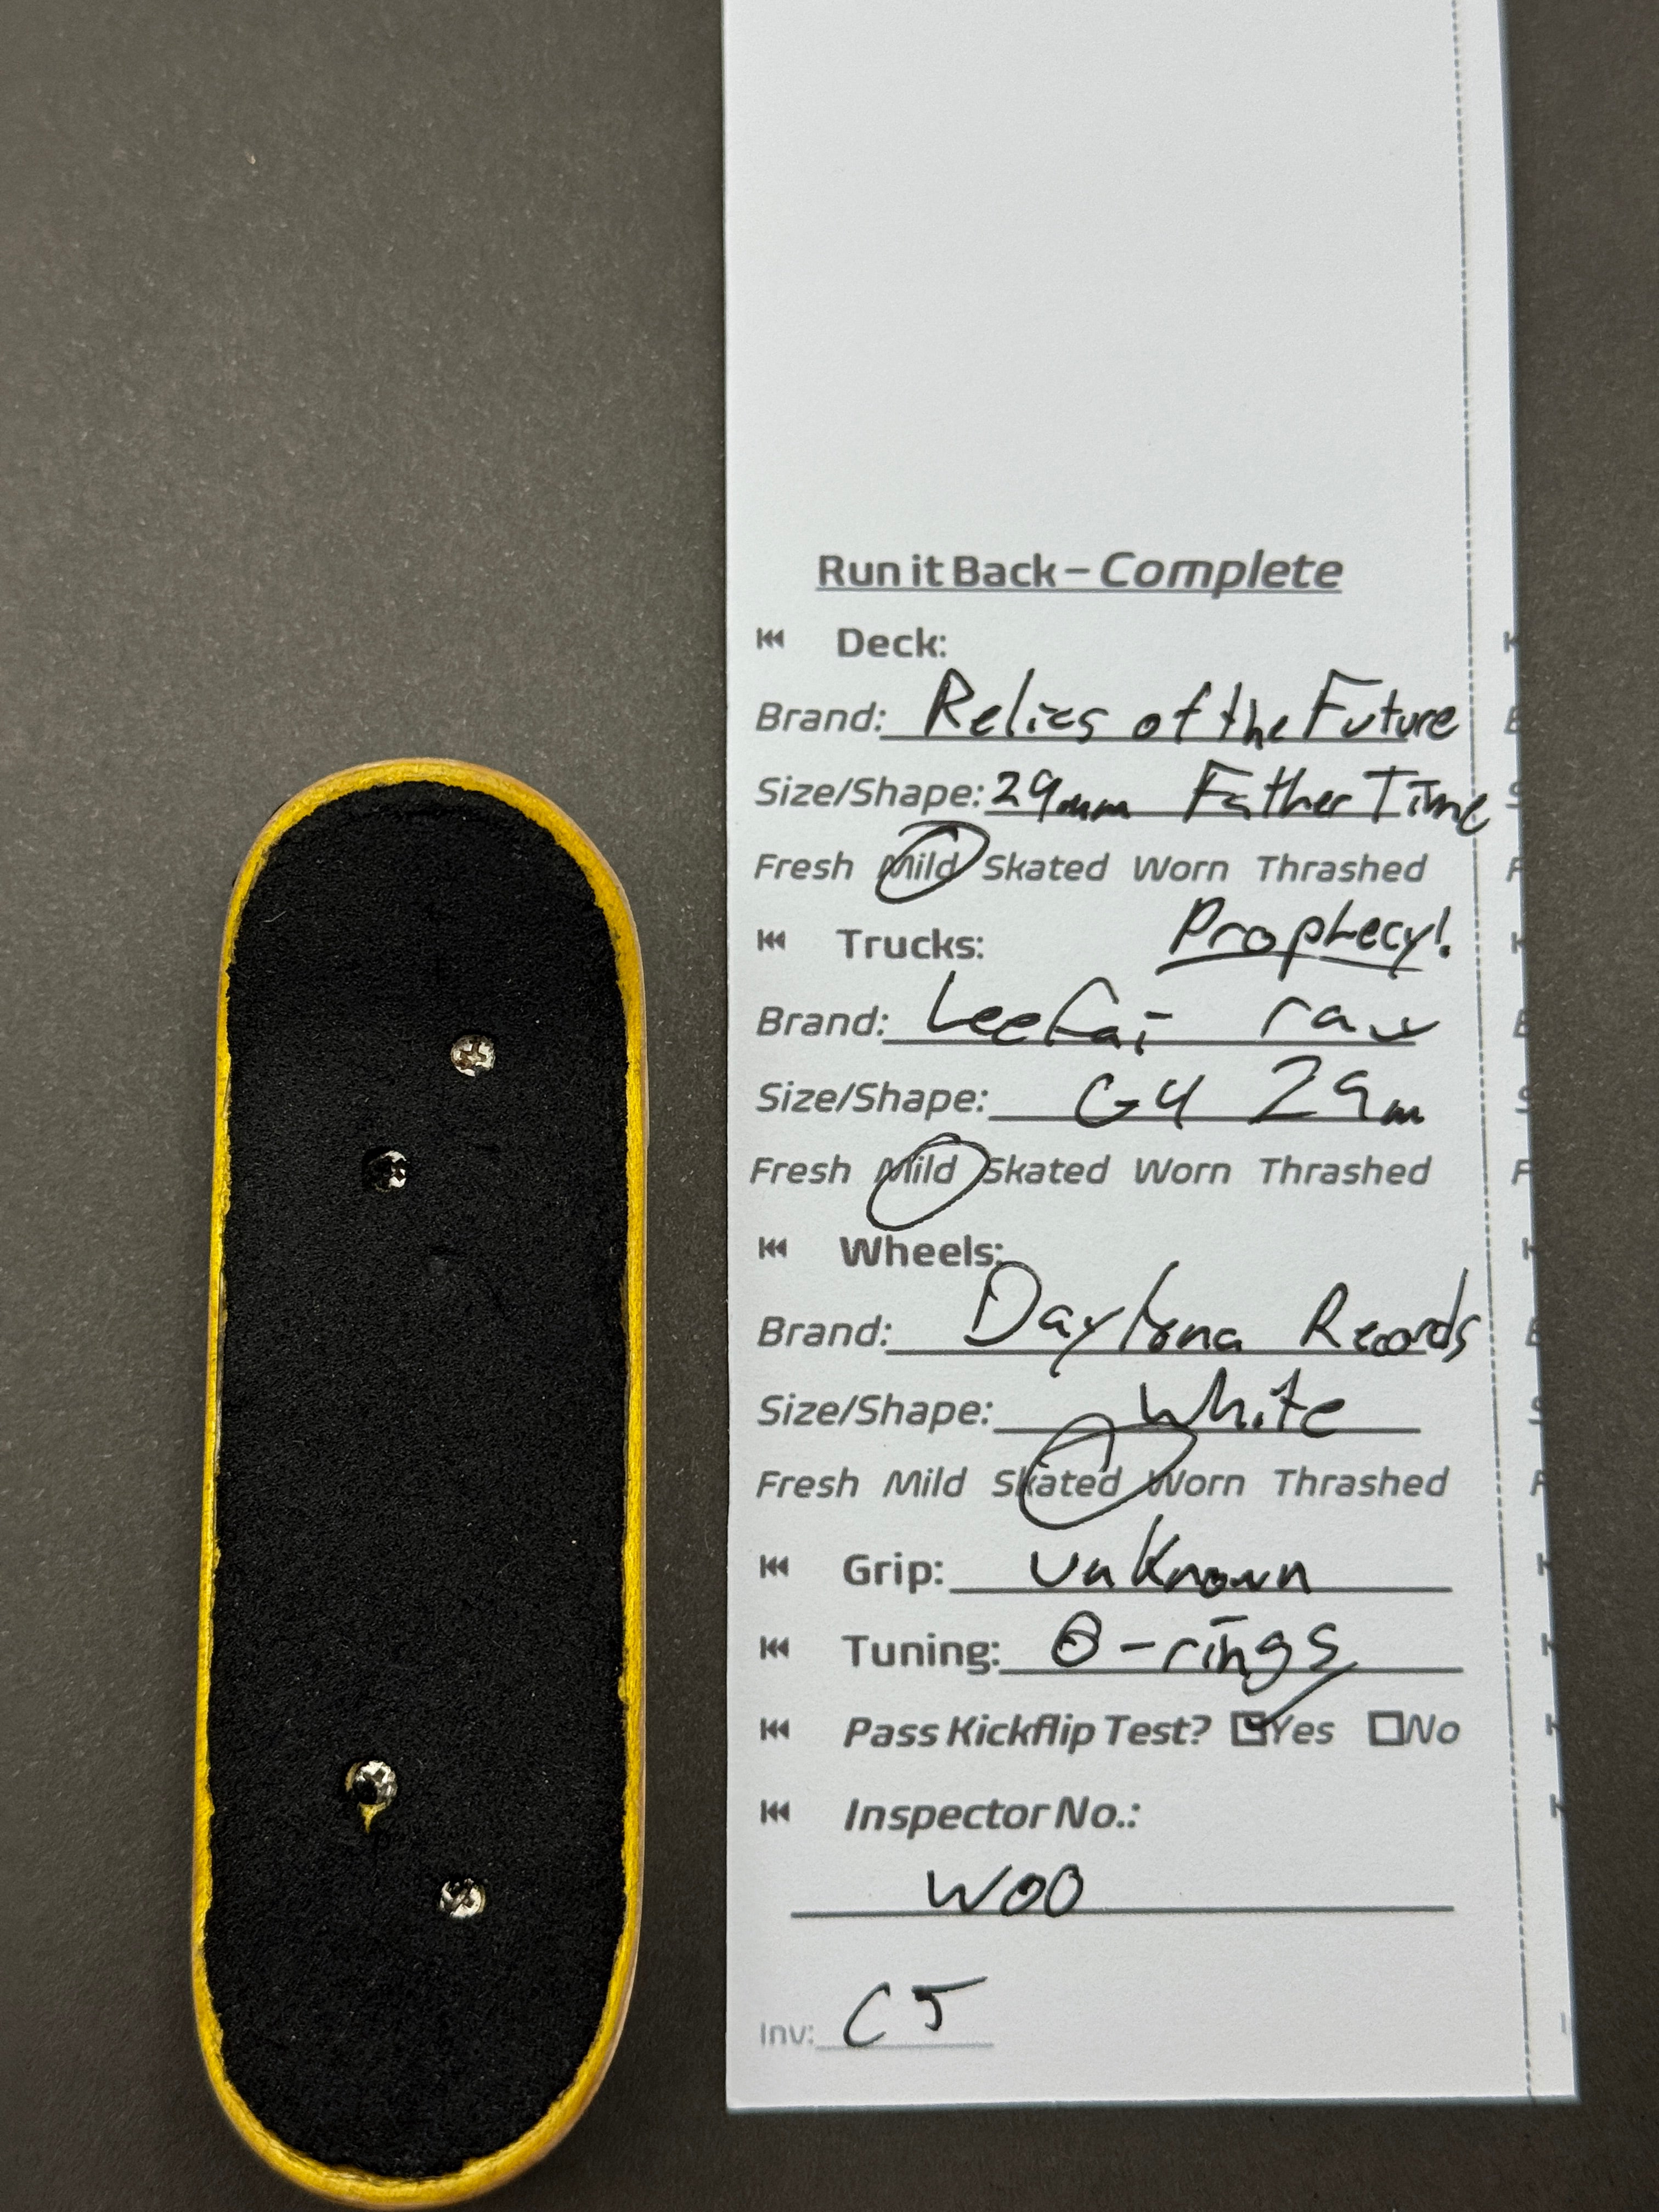 Run it Back – Complete
Deck:
Brand: Relics of the Future
Size/Shape: 29mm Father Time
Fresh Mild Skated Worn Thrashed
Trucks: Prophecy!
Brand: LeeFai raw
Size/Shape: G4 29m
Fresh Mild Skated Worn Thrashed
Wheels:
Brand: Daytona Records
Size/Shape: White
Fresh Mild Skated Worn Thrashed
Grip: unknown
Tuning: O-rings
Pass Kickflip Test? Yes No
Inspector No.:
WOO
Inv: C5